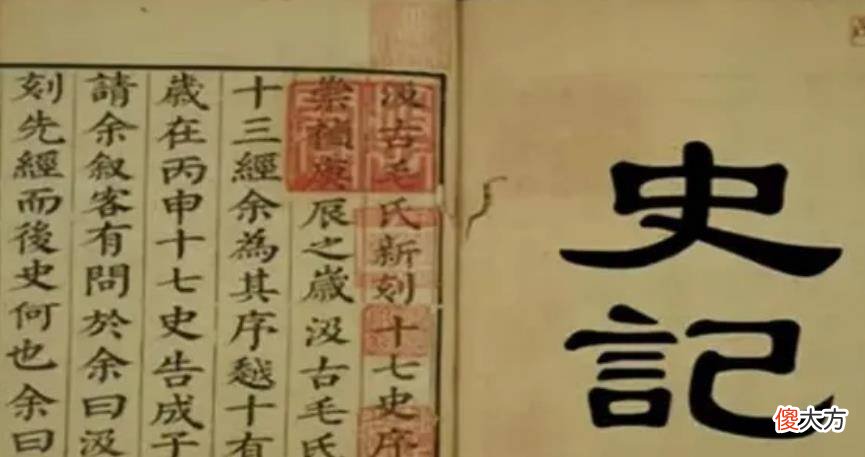 史記
汲古毛氏新刻十七史序
崇禎庚辰之歲汲古毛氏
十三經余為其序越十有
歲在丙申十七史告成子
請余叙客有問於余曰汲
刻先經而後史何也余曰
傻大方